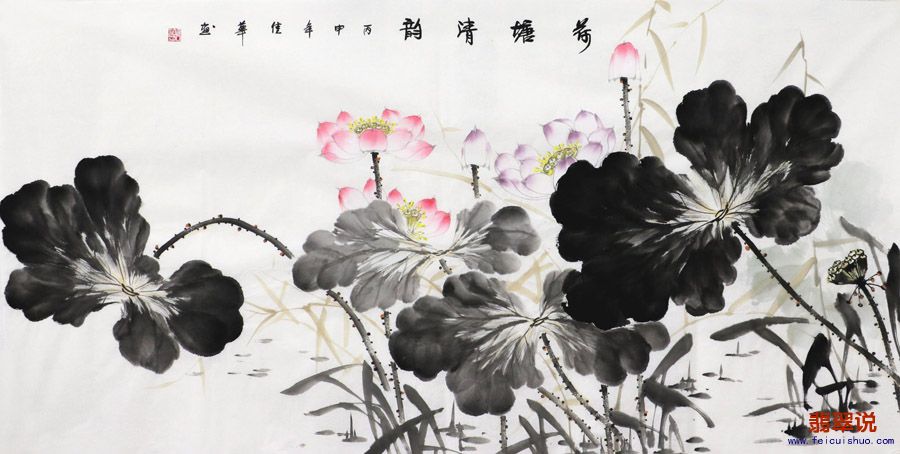 荷塘清韵 丙申年佳华画
翡翠说
www.feicuishuo.com